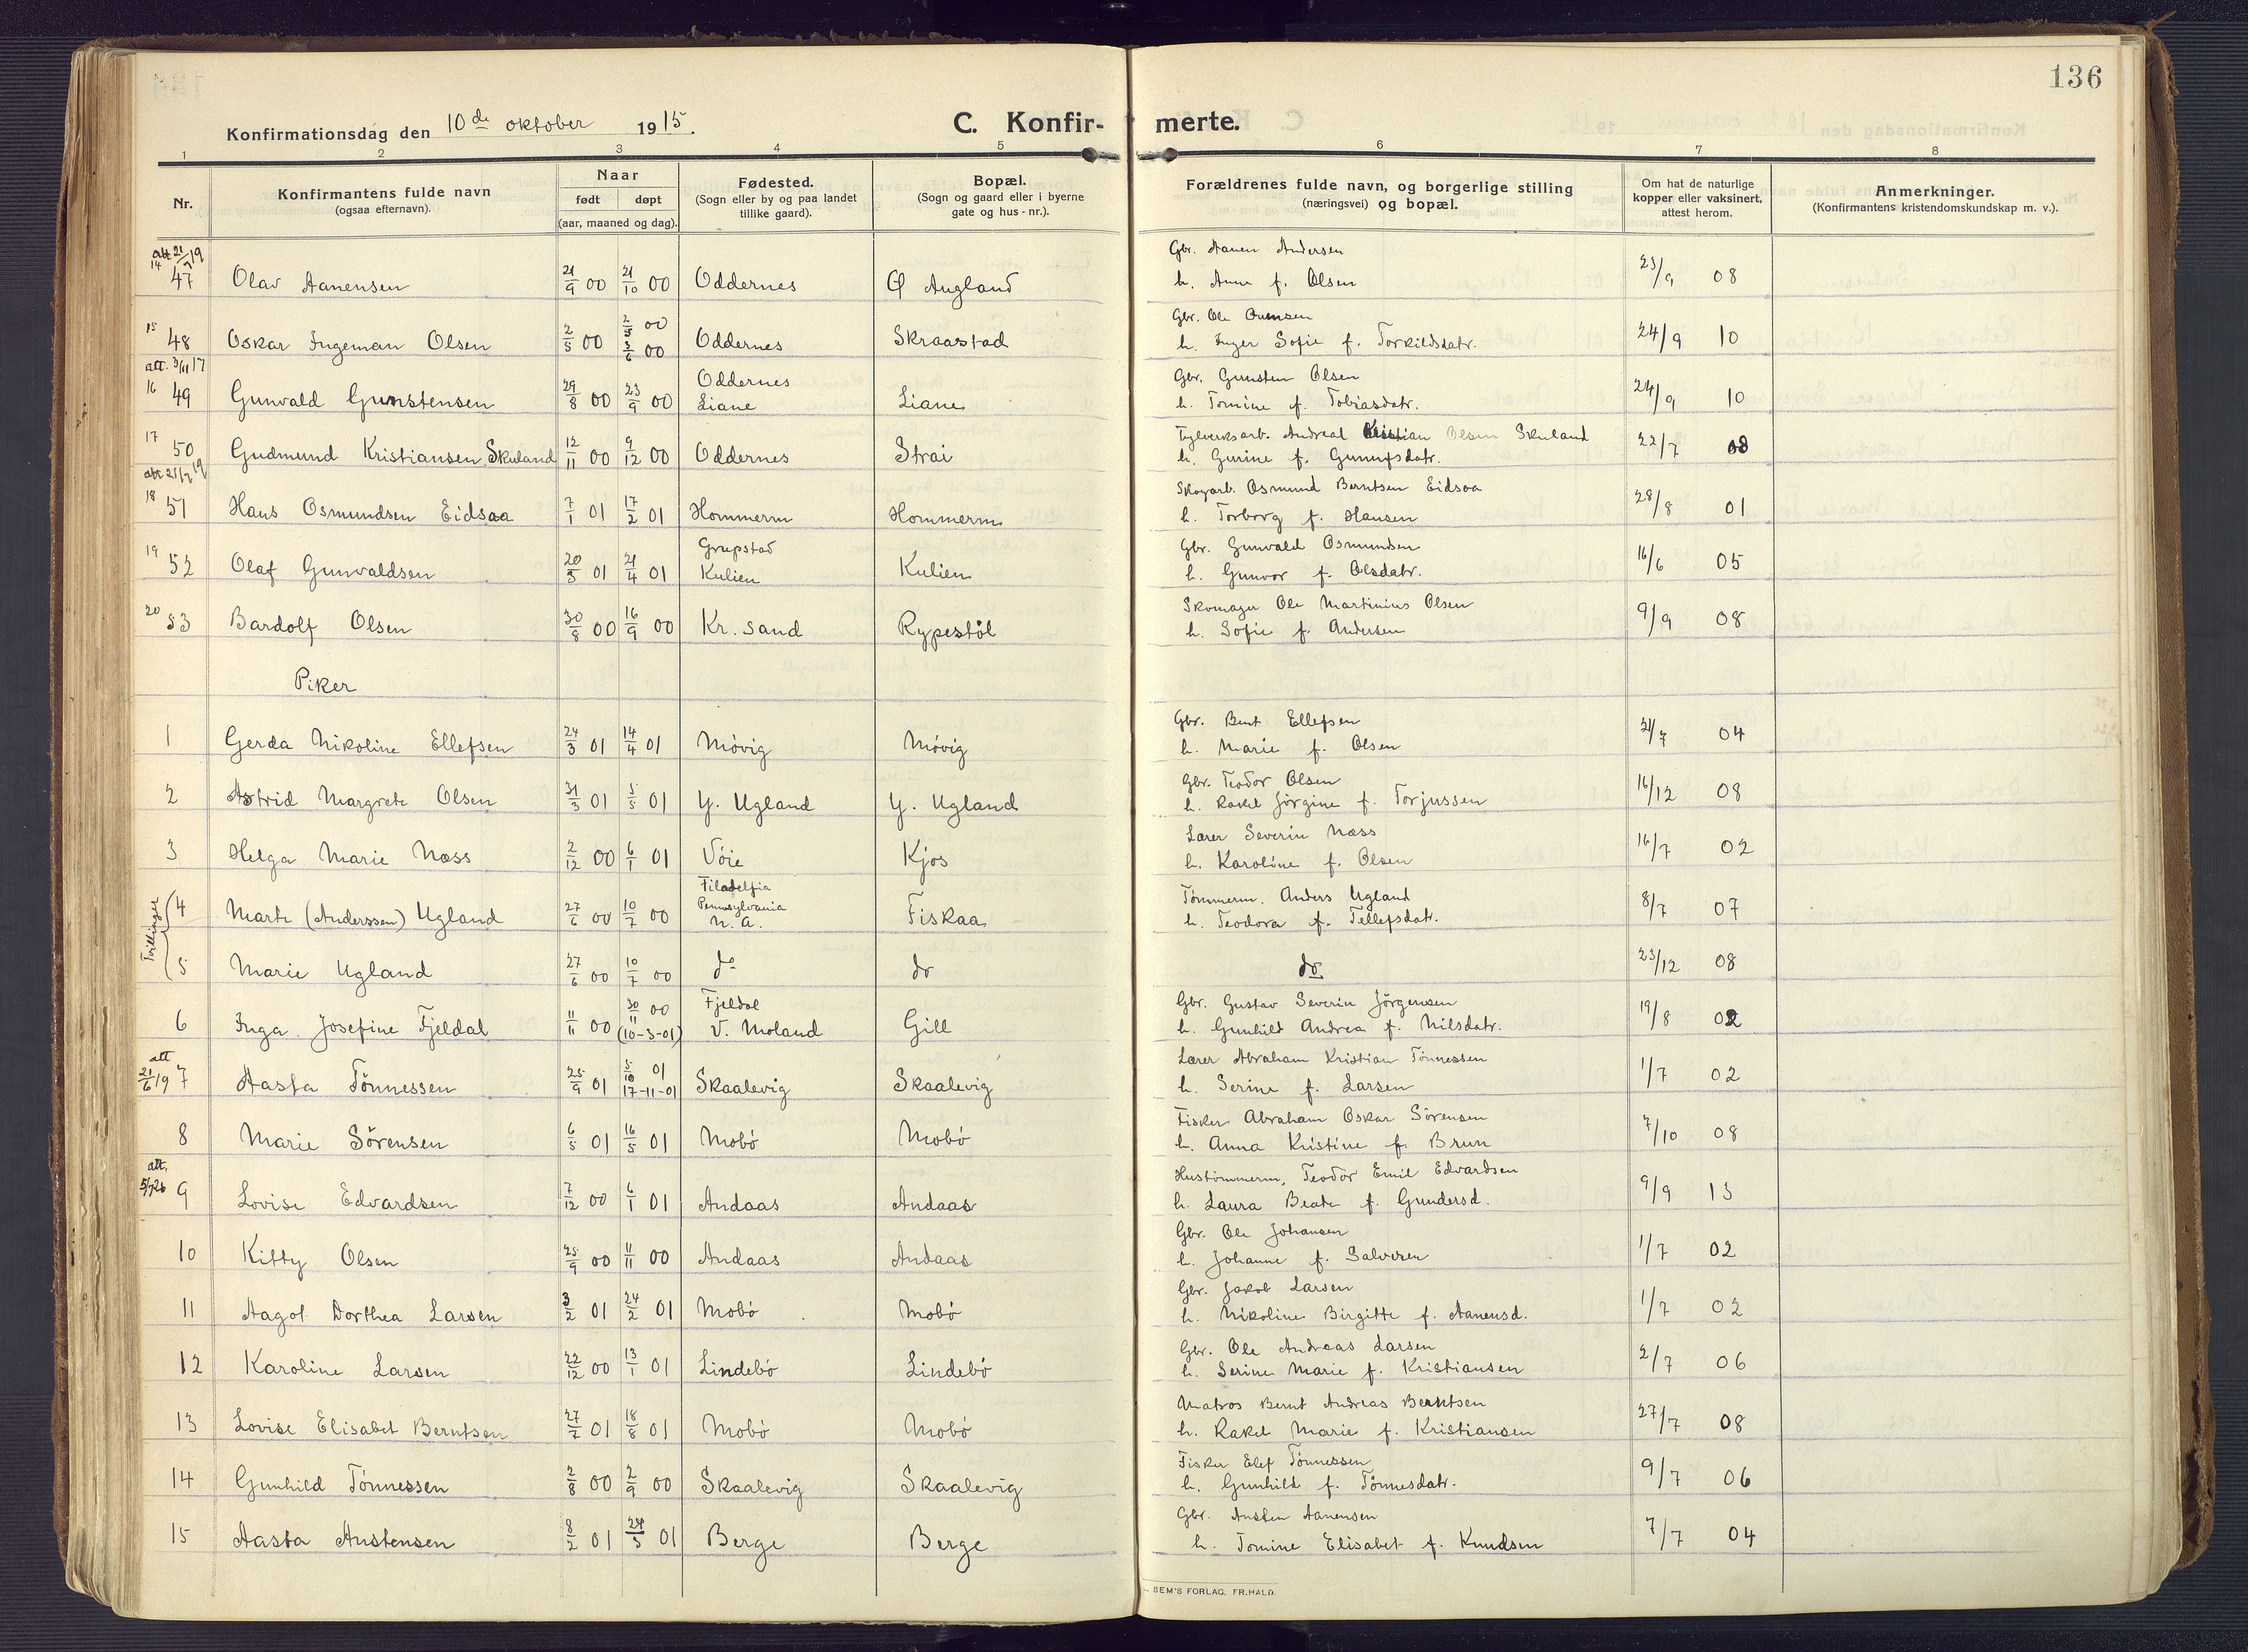 136
Konfirmationsdag den 10de oktober 1915.
C. Konfir- merte.
1 2 3 4 5 6 7 8
Nr.
Konfirmantens fulde navn
(ogsaa efternavn).
Naar
født døpt
(aar, maaned og dag).
Fødested.
(Sogn eller by og paa landet
tillike gaard).
Bopæl.
(Sogn og gaard eller i byerne
gate og hus-nr.).
Forældrenes fulde navn, og borgerlige stilling
(næringsvei) og bopæl.
Om hat de naturlige
kopper eller vaksinert,
attest herom.
Anmerkninger.
(Konfirmantens kristendomskundskap m. v.).
att 21/9 19
Gbr. Aanen Andersen
14 47 Olav Aanensen 21/9 00 21/10 00 Oddernes Ø Augland h. Anne f. Olsen 23/9 08
Gbr. Ole
2/5 00
15 48 Oskar Ingeman Olsen 2/5 00 3/6 00 Oddernes Skraastad h. Inger Sofie f. Torkildsdatr. 24/9 10
att. 3/11 17
Oddernes Gbr. Gunsten Olsen
16 49 Gunvald Gunstensen 29/8 00 23/9 00 Liane Liane h. Tomine f. Tobiasdatr. 24/9 10
Teglverksarb. Andreas Kristian Olsen Skuland
17 50 Gudmund Kristiansen Skuland 12/11 00 9/12 00 Oddernes Strai h. Gurine f. 22/7 08
att 21/7 19
Skogarb. Osmund Berntsen Eidsaa
18 51 Hans Osmundsen Eidsaa 7/1 01 17/2 01 Hommerm Hommerm h. Torborg f. Hansen 28/8 01
Grupstad Gbr. Gunvald Osmundsen
19 52 Olaf Gunvaldsen 20/3 01 21/4 01 Kulien Kulien h. Gunvor f. Olsdatr. 16/6 05
Skomager Ole Martinius Olsen
20 53 Bardolf Olsen 30/8 00 16/9 00 Kr. sand Rypestøl h. Sofie f. Andersen 9/9 08
Piker
Gbr. Bent Ellefsen
1 Gerda Nikoline Ellefsen 24/3 01 14/4 01 Móvig Móvig h. Marie f. Olsen 21/7 04
Gbr. Teodor Olsen
2 Astrid Margrete Olsen 31/3 01 5/5 01 Y. Ugland Y. Ugland h. Rakel Jörgine f. Torjussen 16/12 08
Lærer Severin Næss
3 Helga Marie Næss 2/12 00 6/1 01 Vóie Kjos h. Karoline f. Olsen 16/7 02
Tvillinger
Filadelfia
Pennsylvania Tømmerm. Anders Ugland
4 Marte (Anderssen) Ugland 27/6 00 10/7 00 N. A. Fiskaa h. Teodora f. Tellefsdatr. 8/7 07
5 Marie Ugland 27/6 00 10/7 00 do do do 23/12 08
30/11 00 Fjeldal Gbr. Gustav Severin Jörgensen
6 Inga Josefine Fjeldal 11/11 00 (10-3-01) V. Moland Gill h. Gunhild Andrea f. Nilsdatr. 19/8 02
att 21/6 19
5/10 01 Lærer Abraham Kristian Tönnessen
7 Aasta Tönnessen 25/9 01 17-11-01 Skaalevig Skaalevig h. Serine f. Larsen 1/7 02
Fisker Abraham Oskar Sörensen
8 Marie Sörensen 6/5 01 16/5 01 Mobó Mobó h. Anna Kristine f. Brun 7/10 08
att. 5/7 26
Hustömmerm, Teodor Emil Edvardsen
9 Lovise Edvardsen 7/12 00 6/1 01 Andaas Andaas h. Laura Beate f. Gundersd. 9/9 13
Gbr. Ole Johansen
10 Kitty Olsen 25/9 00 11/11 00 Andaas Andaas h. Johanne f. Salvesen 1/7 02
Gbr. Jakob Larsen
11 Aagot Dorthea Larsen 3/2 01 24/2 01 Mobó Mobó h. Nikoline Birgitte f. Aanensd. 1/7 02
Gbr. Ole Andreas Larsen
12 Karoline Larsen 22/12 00 13/1 01 Lindebó Lindebó h. Serine Marie f. Kristiansen 2/7 06
Matros Bernt Andreas Berntsen
13 Lovise Elisabet Berntsen 27/7 01 18/8 01 Mobó Mobó h. Rakel Marie f. Kristiansen 27/7 08
Fisker Elef Tönnessen
14 Gunhild Tónnessen 2/8 00 2/9 00 Skaalevig Skaalevig h. Gunhild f. Tönnesdatr. 9/7 06
Gbr. Austen Aanensen
15 Aasta Austensen 8/2 01 24/3 01 Berge Berge h. Tomine Elisabet f. Knudsen 7/7 04
SEM'S FORLAG. FR.HALD.